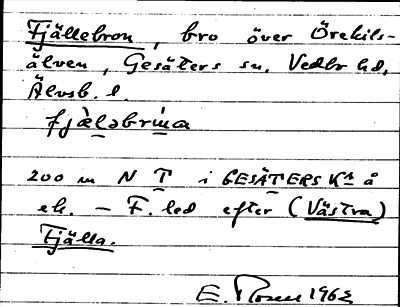 Fjällebron, bro över Örekils-
älven, Gesäters sn. Vedbo hd,
Älvsb. l.
fjä̀ləbrúna
200 m N T i GESÄTERS KA å
ek. – F. led efter (Västra)
Fjälla.
E. Rosen 1962